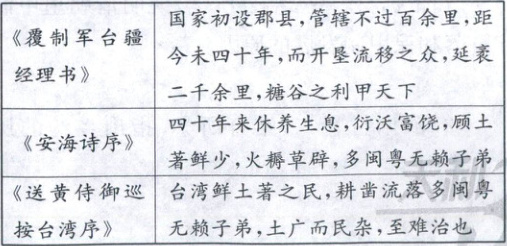 《覆制军台疆经理书》
国家初设郡县，管辖不过百余里，距
今未四十年，而开垦流移之众，延袤
二千余里，糖谷之利甲天下
《安海诗序》
四十年来休养生息，衍沃富饶，顾土
著鲜少，火耨草辟，多闽粤无赖子弟
《送黄侍御巡
按台湾序》
台湾鲜土著之民，耕凿流落多闽粤
无赖子弟，土广而民杂，至难治也